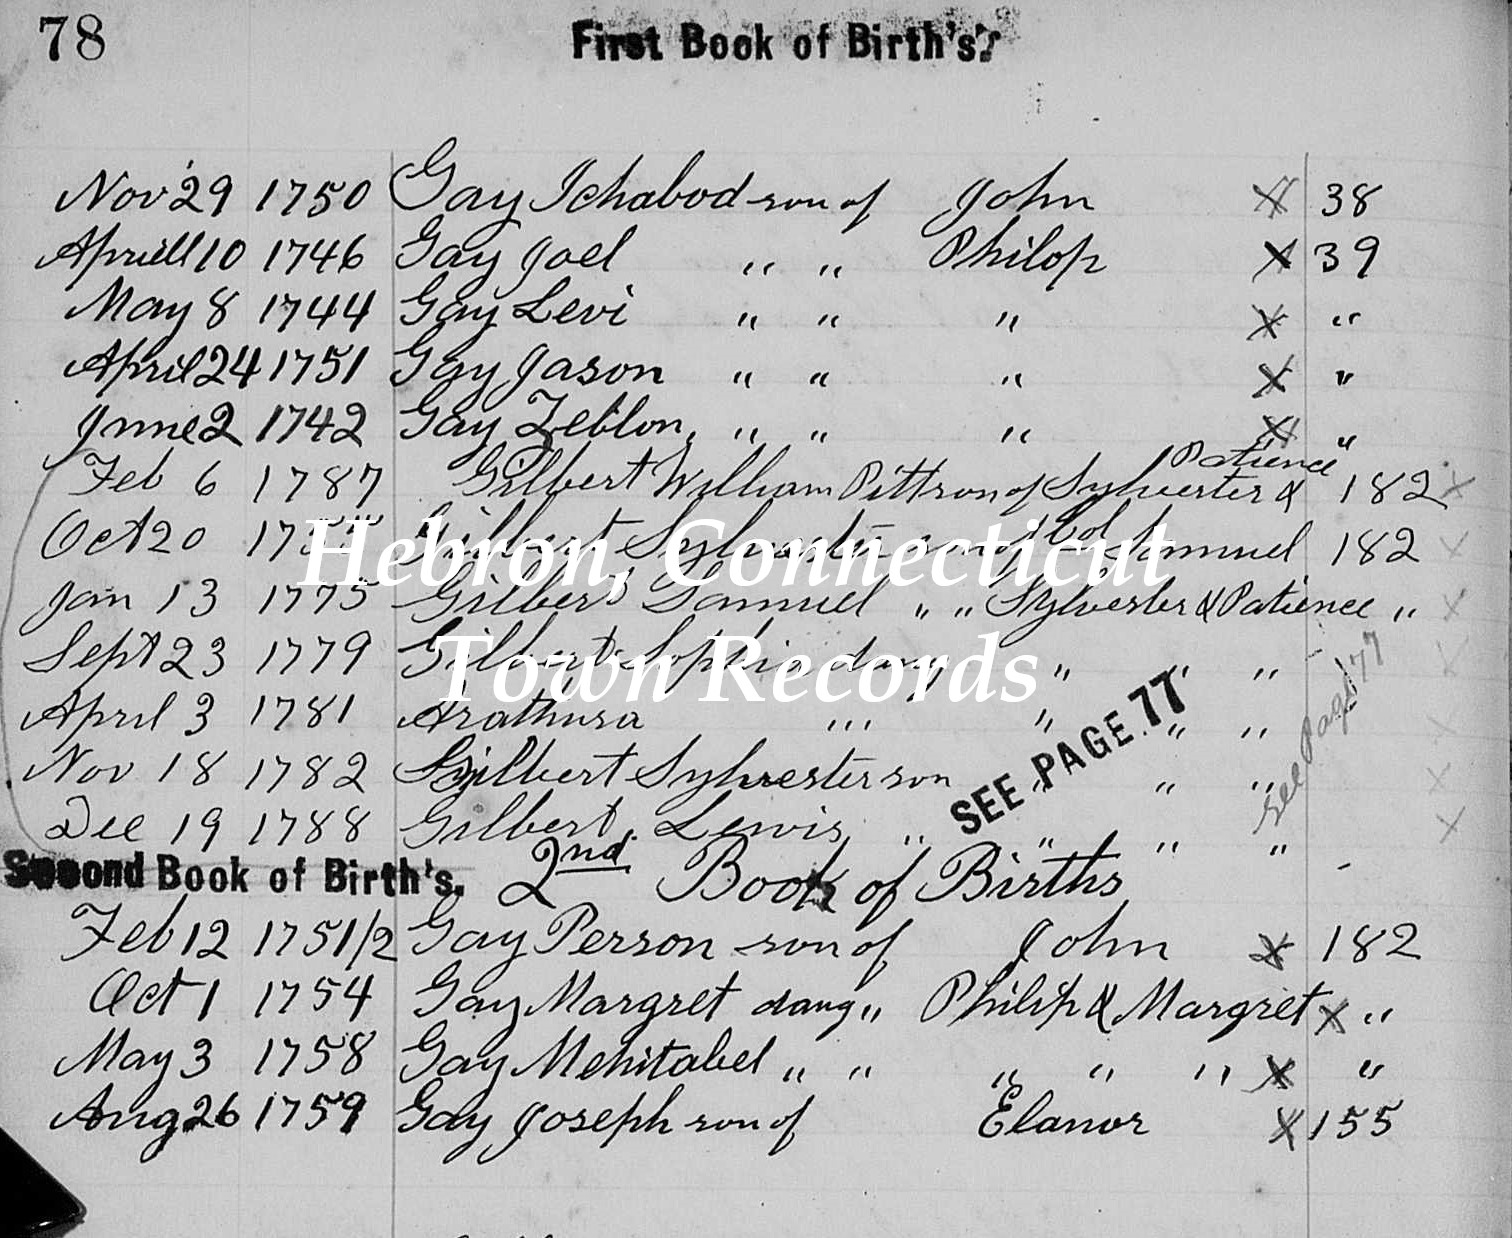 78
First Book of Birth's.
Nov 29 1750 Gay Ichabod son of John X 38
Aprill 10 1746 Gay Joel " " Philop X 39
May 8 1744 Gay Levi " " " X "
April 24 1751 Gay Jason " " " X "
June 2 1742 Gay Zeblon " " " X "
Patience
Feb 6 1787 Gilbert William Pitt son of Sylvester & 182 X
Oct 20 Gilbert Sylvester son of Col Samuel 182 X
Hebron, Connecticut
Jan 13 1775 Gilbert Samuel " " Sylvester & Patience " X
Sept 23 1779 Gilbert Sophia daug " " " X
Town Records
April 3 1781 Arathusa " " " " X
SEE PAGE 77
See Page 77
Nov 18 1782 Gilbert Sylvester son " " " X
Dec 19 1788 Gilbert, Lewis " " " " X
Second Book of Birth's. 2nd Book of Births
Feb 12 1751/2 Gay Person son of John X 182
Oct 1 1754 Gay Margret daug " Philip & Margret X "
May 3 1758 Gay Mehitabel " " " " " X "
Aug 26 1759 Gay Joseph son of Elanor X 155